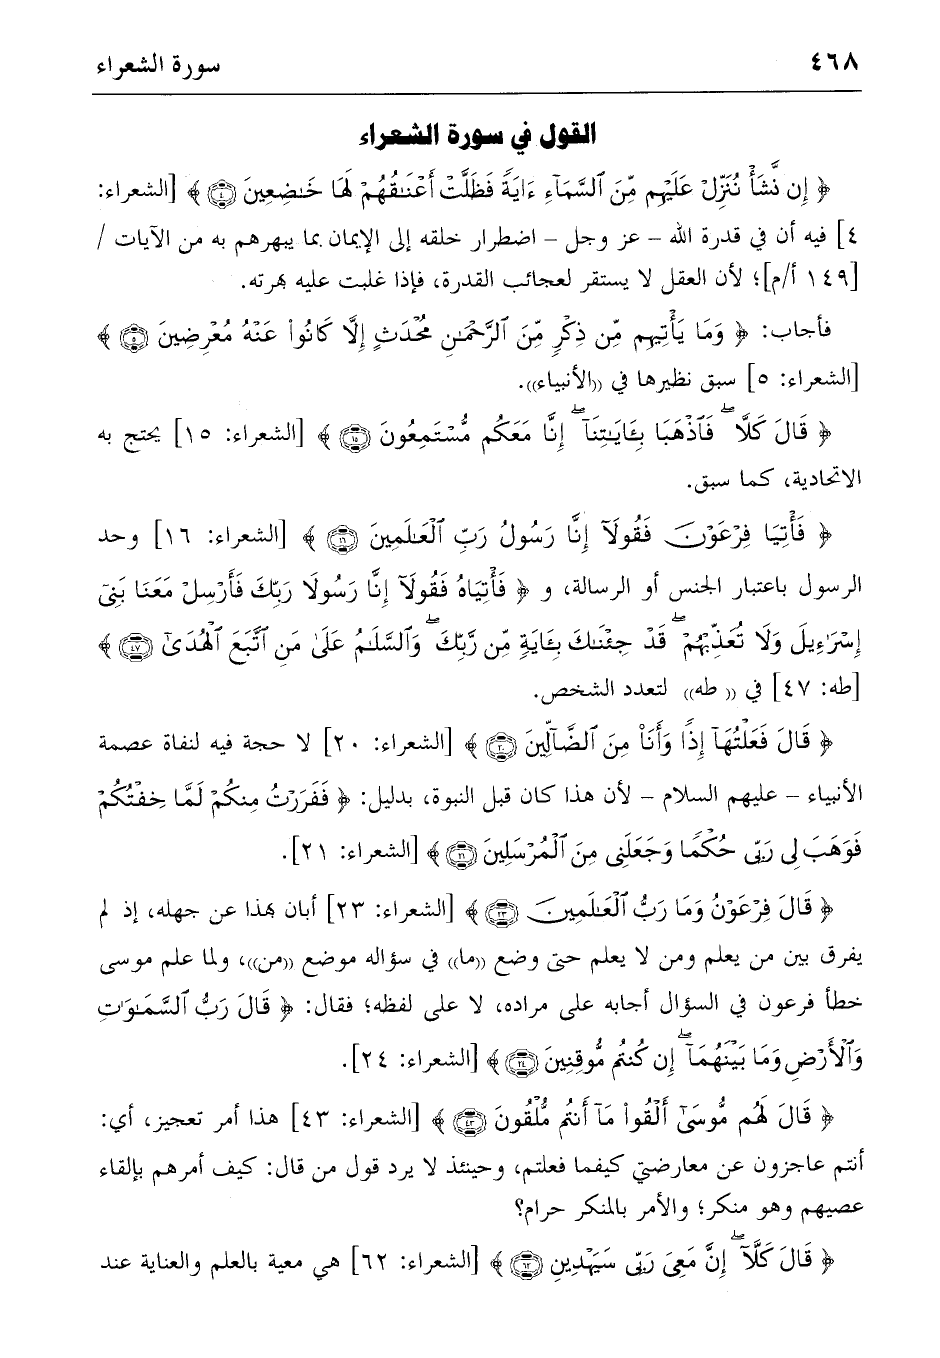 ٤٦٨ سورة الشعراء
القول في سورة الشعراء
﴿ إِن نَّشَأْ نُنَزِّلْ عَلَيْهِم مِّنَ ٱلسَّمَآءِ ءَايَةً فَظَلَّتْ أَعْنَـٰقُهُمْ لَهَا خَـٰضِعِينَ ۝٤ ﴾ [الشعراء:
٤] فيه أن في قدرة الله – عز وجل – اضطرار خلقه إلى الإيمان بما يبهرهم به من الآيات /
[١٤٩ أ/م]؛ لأن العقل لا يستقر لعجائب القدرة، فإذا غلبت عليه بهرته.
فأجاب: ﴿ وَمَا يَأْتِيهِم مِّن ذِكْرٍ مِّنَ ٱلرَّحْمَـٰنِ مُحْدَثٍ إِلَّا كَانُوا۟ عَنْهُ مُعْرِضِينَ ۝٥ ﴾
[الشعراء: ٥] سبق نظيرها في ((الأنبياء)).
﴿ قَالَ كَلَّا ۖ فَٱذْهَبَا بِـَٔايَـٰتِنَآ ۖ إِنَّا مَعَكُم مُّسْتَمِعُونَ ۝١٥ ﴾ [الشعراء: ١٥] يحتج به
الاتحادية، كما سبق.
﴿ فَأْتِيَا فِرْعَوْنَ فَقُولَآ إِنَّا رَسُولُ رَبِّ ٱلْعَـٰلَمِينَ ۝١٦ ﴾ [الشعراء: ١٦] وحد
الرسول باعتبار الجنس أو الرسالة، و ﴿ فَأْتِيَاهُ فَقُولَآ إِنَّا رَسُولَا رَبِّكَ فَأَرْسِلْ مَعَنَا بَنِىٓ
إِسْرَٰٓءِيلَ وَلَا تُعَذِّبْهُمْ ۖ قَدْ جِئْنَـٰكَ بِـَٔايَةٍ مِّن رَّبِّكَ ۖ وَٱلسَّلَـٰمُ عَلَىٰ مَنِ ٱتَّبَعَ ٱلْهُدَىٰٓ ۝٤٧ ﴾
[طه: ٤٧] في (( طه)) لتعدد الشخص.
﴿ قَالَ فَعَلْتُهَآ إِذًا وَأَنَا۠ مِنَ ٱلضَّآلِّينَ ۝٢٠ ﴾ [الشعراء: ٢٠] لا حجة فيه لنفاة عصمة
الأنبياء – عليهم السلام – لأن هذا كان قبل النبوة، بدليل: ﴿ فَفَرَرْتُ مِنكُمْ لَمَّا خِفْتُكُمْ
فَوَهَبَ لِى رَبِّى حُكْمًا وَجَعَلَنِى مِنَ ٱلْمُرْسَلِينَ ۝٢١ ﴾ [الشعراء: ٢١].
﴿ قَالَ فِرْعَوْنُ وَمَا رَبُّ ٱلْعَـٰلَمِينَ ۝٢٣ ﴾ [الشعراء: ٢٣] أبان بهذا عن جهله، إذ لم
يفرق بين من يعلم ومن لا يعلم حتى وضع ((ما)) في سؤاله موضع ((من))، ولما علم موسى
خطأ فرعون في السؤال أجابه على مراده، لا على لفظه؛ فقال: ﴿ قَالَ رَبُّ ٱلسَّمَـٰوَٰتِ
وَٱلْأَرْضِ وَمَا بَيْنَهُمَآ ۖ إِن كُنتُم مُّوقِنِينَ ۝٢٤ ﴾ [الشعراء: ٢٤].
﴿ قَالَ لَهُم مُّوسَىٰٓ أَلْقُوا۟ مَآ أَنتُم مُّلْقُونَ ۝٤٣ ﴾ [الشعراء: ٤٣] هذا أمر تعجيز، أي:
أنتم عاجزون عن معارضتي كيفما فعلتم، وحينئذ لا يرد قول من قال: كيف أمرهم بإلقاء
عصيهم وهو منكر؛ والأمر بالمنكر حرام؟
﴿ قَالَ كَلَّآ ۖ إِنَّ مَعِىَ رَبِّى سَيَهْدِينِ ۝٦٢ ﴾ [الشعراء: ٦٢] هي معية بالعلم والعناية عند